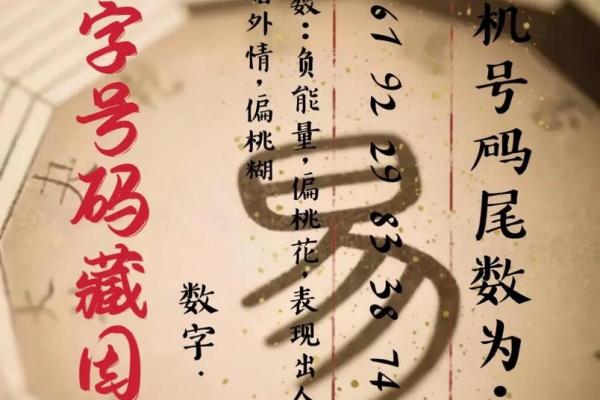 机号码尾数为·
61 92 29 83 38 74
数：负能量，偏桃花，表现出人
外情，偏桃糊
数字·
字号码藏因
易